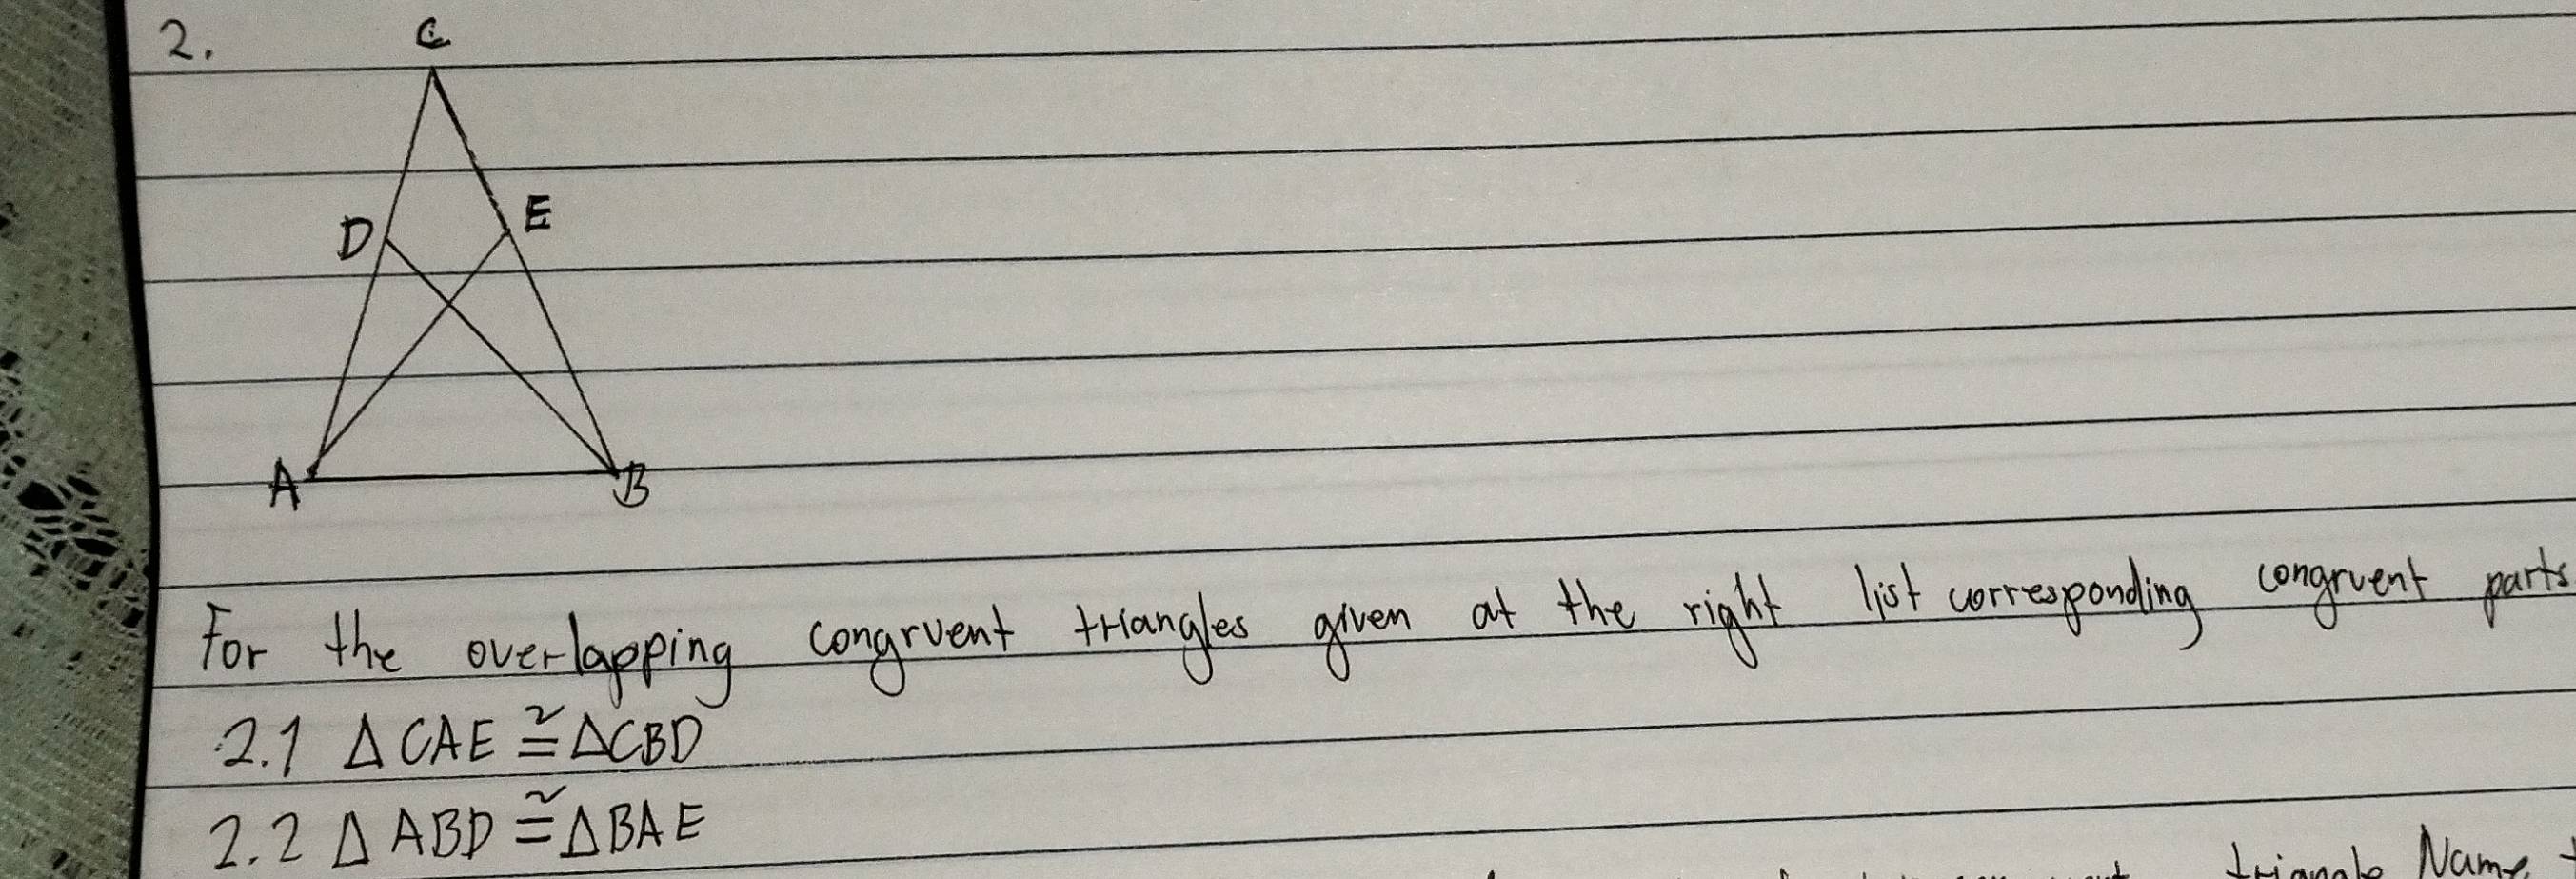 2.
C
D
E
A
B
For the overlapping congruent triangles given at the right list corresponding congruent parts
2.1 △CAE ≅ △CBD
2.2 △ABD ≅ △BAE
triangle Name